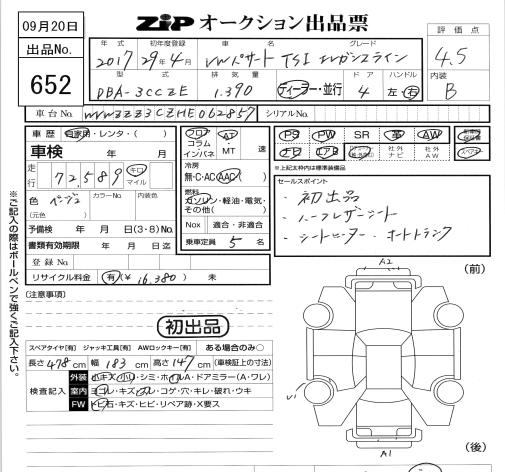 09月20日
出品No.
652
ZIP オークション出品票
評価点
4.5
内装
B
年式 初年度登録 車名 グレード
2017 29年4月 VWパサート TSI エレガンスライン
型式 排気量 ドア ハンドル
DBA-3CCZE 1.390 ディーラー・並行 4 左・右
車台No. WVWZZZ3CZHE062857 シリアルNo.
車歴 自家用・レンタ・( )
車検 年 月
走行 72,589 キロ マイル
色 ベージュ カラーNo. 内装色
(元色)
予備検 年 月 日(3・8)No.
書類有効期限 年 月 日迄
登録No.
リサイクル料金 有(¥ 16,380) 未
フロア コラム インパネ
AT ・ MT 速
冷房
無・C・AC・AAC
燃料
ガソリン・軽油・電気・
その他( )
Nox 適合・非適合
乗車定員 5 名
PS PW SR 革 AW
ナビ エアB 社外ナビ 社外AW
※上記太枠内は標準装備品
セールスポイント
・初出品
・ハーフレザーシート
・シートヒーター・オートトランク
※ご記入の際はボールペンで強くご記入下さい。
(注意事項)
初出品
スペアタイヤ[有] ジャッキ工具[有] AWロックキー[有] ある場合のみ○
長さ 478 cm 幅 183 cm 高さ 147 cm (車検証上の寸法)
検査記入
外装 小キズ・小凹・シミ・ホイルA・ドアミラー(A・ワレ)
室内 ヨゴレ・キズ・スレ・コゲ・穴・キレ・破れ・ウキ
FW トビ石・キズ・ヒビ・リペア跡・X要ス
(前)
A2
V
A1
(後)